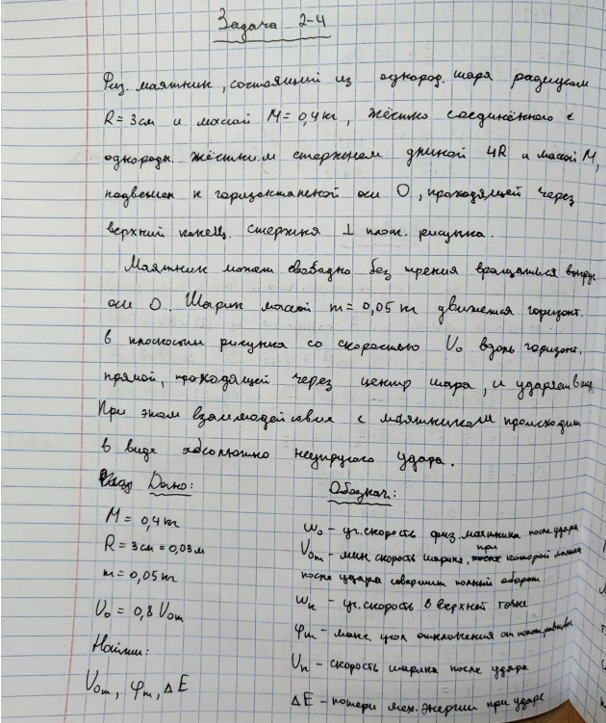 Задача 2-4
Физ. маятник, состоящий из однород. шара радиусом
R = 3 см и массой M = 0,4 кг, жёстко соединённого с
однородн. жёстким стержнем длиной 4R и массой M,
подвешен к горизонтальной оси O, проходящей через
верхний конец. стержня ⊥ плоск. рисунка.
Маятник может свободно без трения вращаться вокруг
оси O. Шарик массой m = 0,05 кг движется горизонт.
в плоскости рисунка со скоростью V₀ вдоль горизонт.
прямой, проходящей через центр шара, и ударяет в
При этом взаимодействие с маятником происходит
в виде абсолютно неупругого удара.
Дано:
Обознач.:
M = 0,4 кг
R = 3 см = 0,03 м
m = 0,05 кг
V₀ = 0,8 V₀m
Найти:
V₀m, φm, ΔE
ω₀ - уг. скорость физ. маятника после удара
V₀m - мин. скорость шарика, при которой
после удара совершит полный оборот
ωк - уг. скорость в верхней точке
φm - макс. угол отклонения от
Uк - скорость шарика после удара
ΔE - потери мех. энергии при ударе